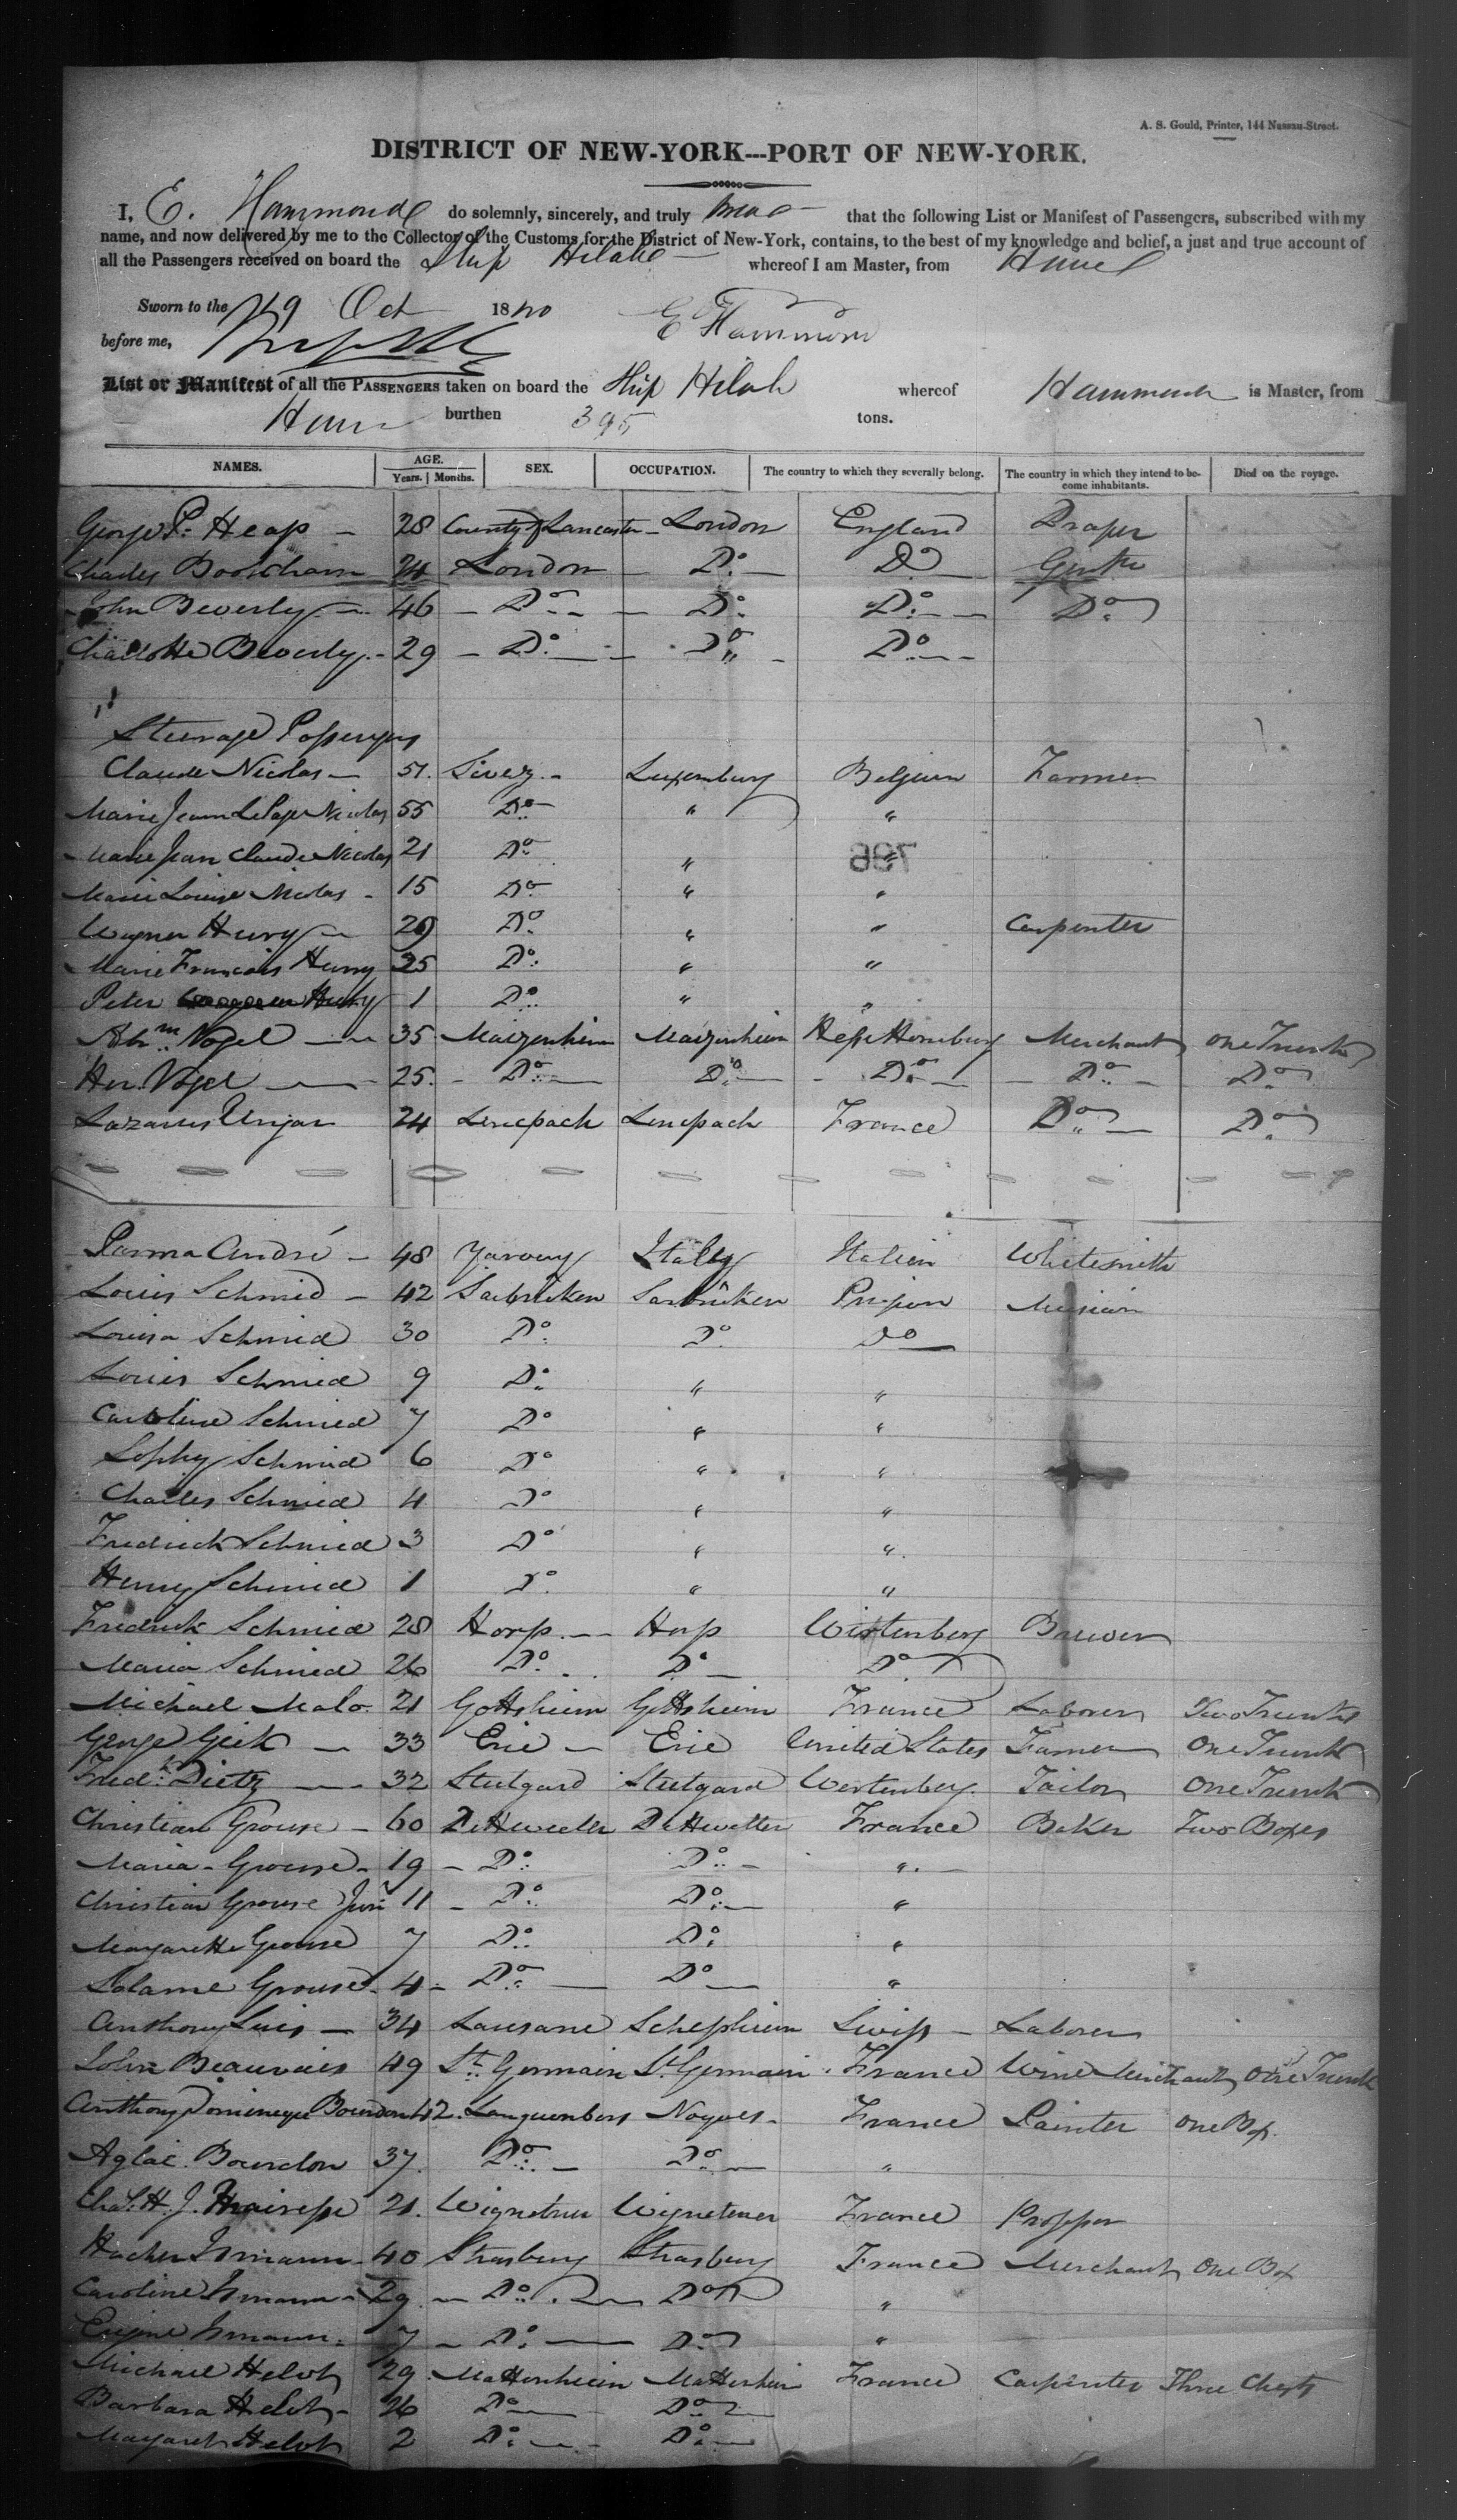 A. S. Gould, Printer, 144 Nassau-Street.
DISTRICT OF NEW-YORK---PORT OF NEW-YORK.
I, E. Hammond do solemnly, sincerely, and truly swear that the following List or Manifest of Passengers, subscribed with my
name, and now delivered by me to the Collector of the Customs for the District of New-York, contains, to the best of my knowledge and belief, a just and true account of
all the Passengers received on board the Ship whereof I am Master, from Havre
Sworn to the 19 Oct 1840 E Hammond
before me,
List or Manifest of all the PASSENGERS taken on board the Ship whereof Hammond is Master, from
Havre burthen 395 tons.
NAMES. AGE. SEX. OCCUPATION. The country to which they severally belong. The country in which they intend to be- Died on the voyage.
Years. Months. come inhabitants.
George P. Heap 28 County of Lancaster London England Draper
Charles 24 London Do Do
John Beverly 46 Do Do Do Do
Charlotte Beverly 29 Do Do Do
Steerage Passengers
Claude Nicolas 51 Luxemburg Belgium Farmer
Marie Jeann LePage Nicolas 55 Do " "
Marie Jean Claude Nicolas 21 Do " "
Marie Louise Nicolas 15 Do " "
Wagner Henry 29 Do " " Carpenter
Marie Francois Henry 25 Do " "
Peter Henry 1 Do " "
Abm Vogel 35 Maizenheim Maizenheim Hesse Homburg Merchant One Trunk
Hen. Vogel 25 Do Do Do Do Do
Lazarus 24 Lincpach Lincpach France Do Do
Parma André 48 Italy Italien Whitesmith
Louis Schmid 42 Sarbrüken Sarbrüken Prussian Musician
Louisa Schmied 30 Do Do Do
Louis Schmied 9 Do " "
Caroline Schmied 7 Do " "
Sophy Schmied 6 Do " "
Charles Schmied 4 Do " "
Fredrick Schmied 3 Do " "
Henry Schmied 1 Do " "
Fredrick Schmied 28 Horp Horp Wirtenberg Brewer
Maria Schmied 26 Do Do Do
Michael Malo 21 Gottsheim Gottsheim France Laborer Two Trunks
George Geik 33 Erie Erie United States Farmer One Trunk
Fredk Dietz 32 Stutgard Stutgard Wertenberg Tailor One Trunk
Christian Grouse 60 Dettweeller Dettweller France Baker Two Boxes
Maria Grouse 19 Do Do "
Christian Grouse Junr 11 Do Do "
Margarette Grouse 7 Do Do "
Salame Grouse 4 Do Do "
Anthony 34 Lausane Swiss Laborer
John Beauvais 49 St. Germain St. Germain France Wine Merchant One Trunk
Anthony Domineque Bourdon 42 Noyers France Painter One Box
Aglaé Bourdon 37 Do Do "
Chas. H. J. 21 France
40 Strasburg Strasburg France Merchant One Box
Caroline Ismann 29 Do Do "
Eugene Ismann 7 Do Do "
Michael Helot 29 Mattenheim Mattenheim France Carpenter Three Chests
Barbara Helot 26 Do Do
Margaret Helot 2 Do Do